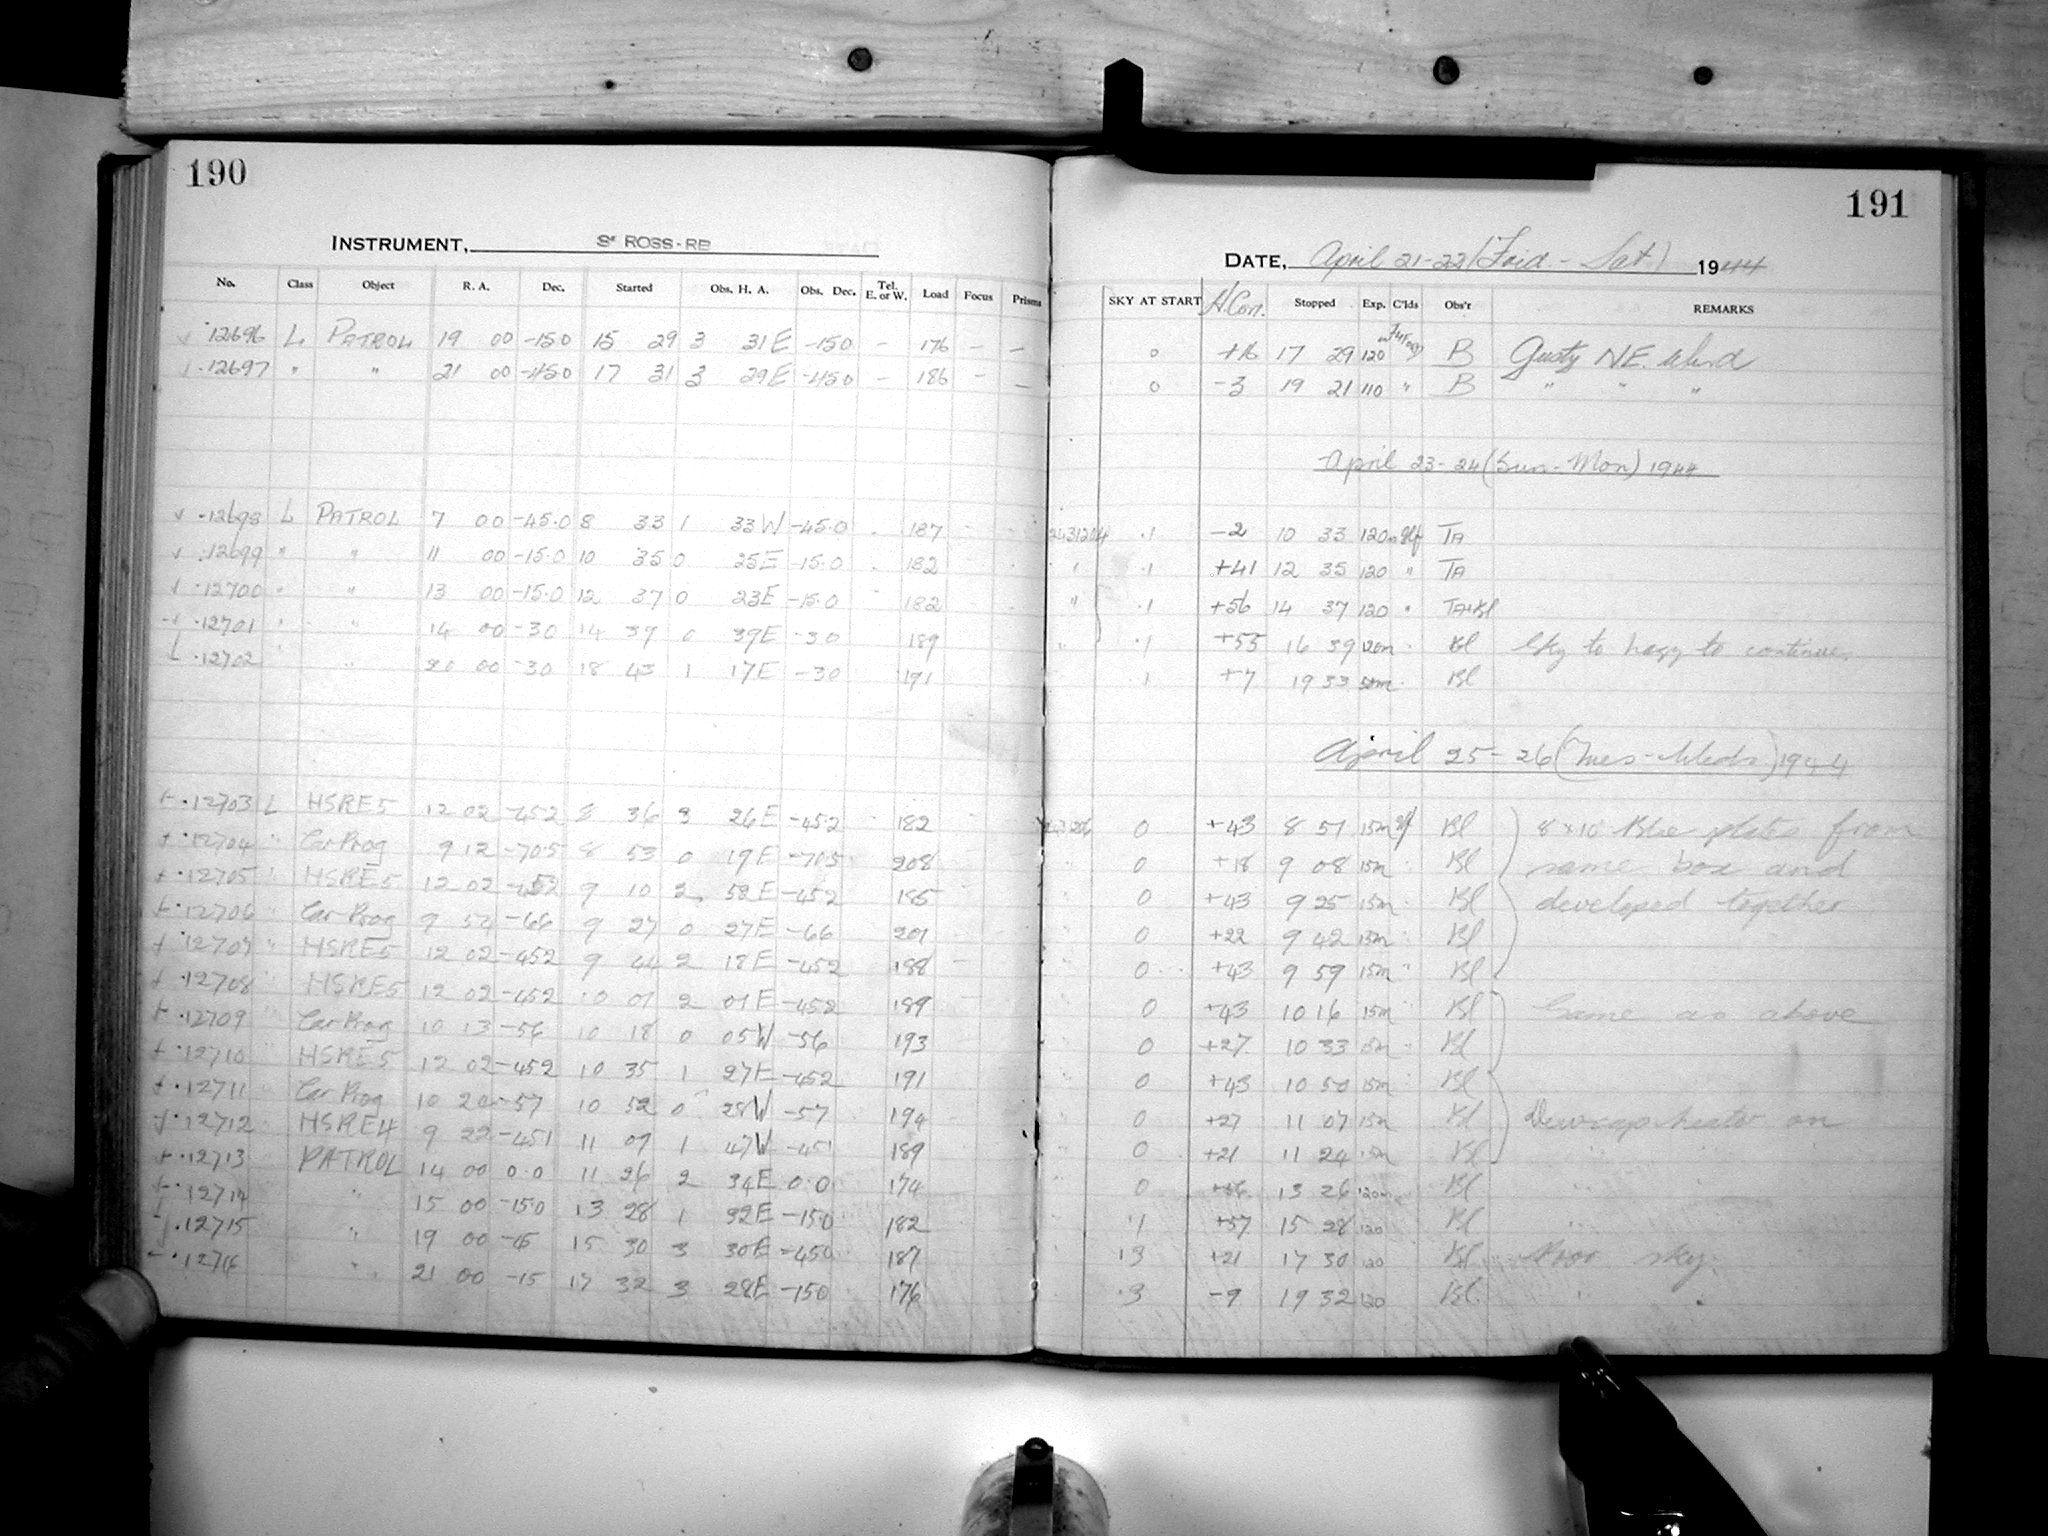 190
INSTRUMENT, Sr ROSS-RB
No. Class Object R. A. Dec. Started Obs. H. A. Obs. Dec. Tel. E. or W. Load Focus Prisms
12696 L PATROL 19 00 -15.0 15 29 3 31E -15.0 - 176 - -
12697 " " 21 00 -45.0 17 31 3 29E -45.0 - 186 - -
12698 L PATROL 7 00 -45.0 8 33 1 33W -45.0 187
12699 " " 11 00 -15.0 10 35 0 25E -15.0 182
12700 " " 13 00 -15.0 12 37 0 23E -15.0 182
12701 " " 14 00 -30 14 39 0 39E -30 189
12702 " " 20 00 -30 18 43 1 17E -30 191
12703 L HSRE5 12 02 -452 8 36 3 26E -452 182
12704 " Car Prog 9 12 -705 8 53 0 19E -705 208
12705 " HSRE5 12 02 -452 9 10 2 52E -452 185
12706 " Car Prog 9 54 -66 9 27 0 27E -66 201
12707 " HSRE5 12 02 -452 9 44 2 18E -452 188
12708 " HSRE5 12 02 -452 10 01 2 01E -452 189
12709 " Car Prog 10 13 -56 10 18 0 05W -56 193
12710 HSRE5 12 02 -452 10 35 1 27E -452 191
12711 Car Prog 10 20 -57 10 52 0 28W -57 194
12712 HSRE4 9 22 -451 11 09 1 47W -451 189
12713 PATROL 14 00 0.0 11 26 2 34E 0.0 174
12714 " 15 00 -150 13 28 1 32E -150 182
12715 " 19 00 -45 15 30 3 30E -450 187
12716 " 21 00 -15 17 32 3 28E -150 176
191
DATE, April 21-22 (Frid. - Sat.) 1944
SKY AT START H.Corr. Stopped Exp. C'lds Obs'r REMARKS
0 +16 17 29 120 B Gusty NE. Wind
0 -3 19 21 110 " B " " "
April 23-24 (Sun-Mon) 1944
2431204 .1 -2 10 33 120m TA
" .1 +41 12 35 120 " TA
" .1 +56 14 37 120 " TA+Bl
" .1 +55 16 39 120m Bl Sky to hazy to continue.
.1 +7 19 33 50m Bl
April 25-26 (Tues-Weds) 1944
0 +43 8 51 15m Bl 8x10 Blue plates from
0 +18 9 08 15m Bl same box and
0 +43 9 25 15m Bl developed together
0 +22 9 42 15m Bl
0 +43 9 59 15m Bl
0 +43 10 16 15m Bl Same as above
0 +27 10 33 15m Bl
0 +43 10 50 15m Bl
0 +27 11 07 15m Bl Dewcap heater on
0 +21 11 24 15m Bl " "
0 13 26 120m Bl
.1 +57 15 28 120 Bl "
.3 +21 17 30 120 Bl Poor sky.
.3 -9 19 32 120 Bl. "